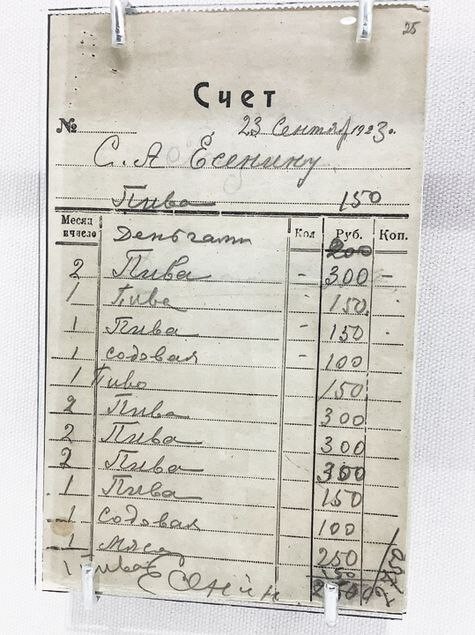 25
Счет
№ 23 Сентяб 1923г.
С. А Есенину
Пива 150
Месяц и число Кол Руб. Коп.
Деньгами 200
2 Пива - 300 -
1 Пива - 150
1 Пива - 150
1 содовая - 100
1 Пиво 150
2 Пива 300
2 Пива 300
2 Пива 300
1 Пива 150
1 Содовая 100
1 Мясо 250
1 пива 150